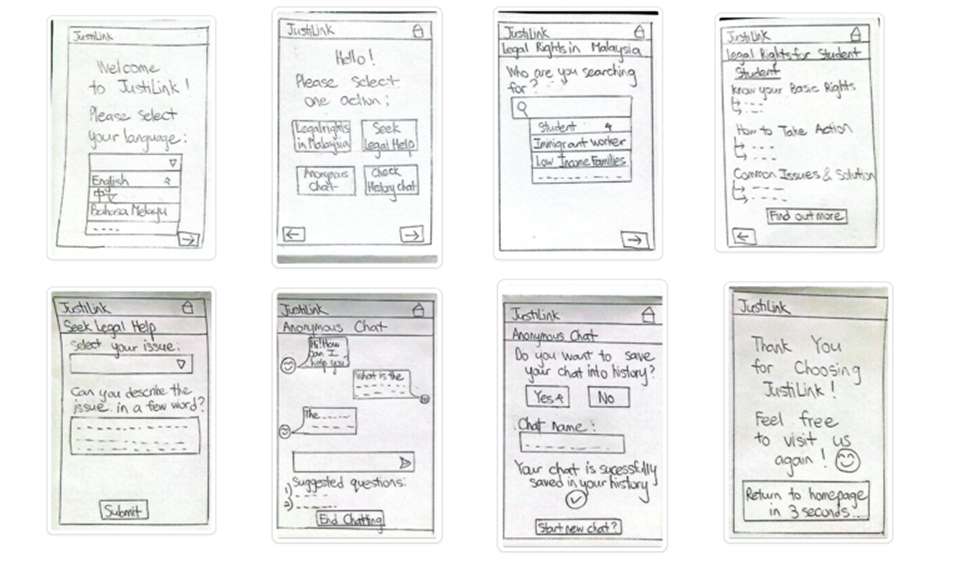 JustiLink
Welcome
to JustiLink!
Please select
your language:
English
中文
Bahasa Melayu
JustiLink
Hello!
Please select
one action:
Legal rights
in Malaysia
Seek
Legal Help
Anonymous
Chat
Check
History chat
JustiLink
Legal Rights in Malaysia
Who are you searching
for?
Student
Immigrant worker
Low Income Families
JustiLink
Legal Rights for Student
Student
Know your Basic Rights
How to Take Action
Common Issues & Solution
Find out more
JustiLink
Seek Legal Help
Select your issue:
Can you describe the
issue in a few word?
Submit
JustiLink
Anonymous Chat
Hi! How
can I
help you?
What is the
The
Suggested questions:
1)
2)
End Chatting
JustiLink
Anonymous Chat
Do you want to save
your chat into history?
Yes
No
Chat name:
Your chat is sucessfully
saved in your history
Start new chat?
JustiLink
Thank You
for Choosing
JustiLink!
Feel free
to visit us
again!
Return to homepage
in 3 seconds...